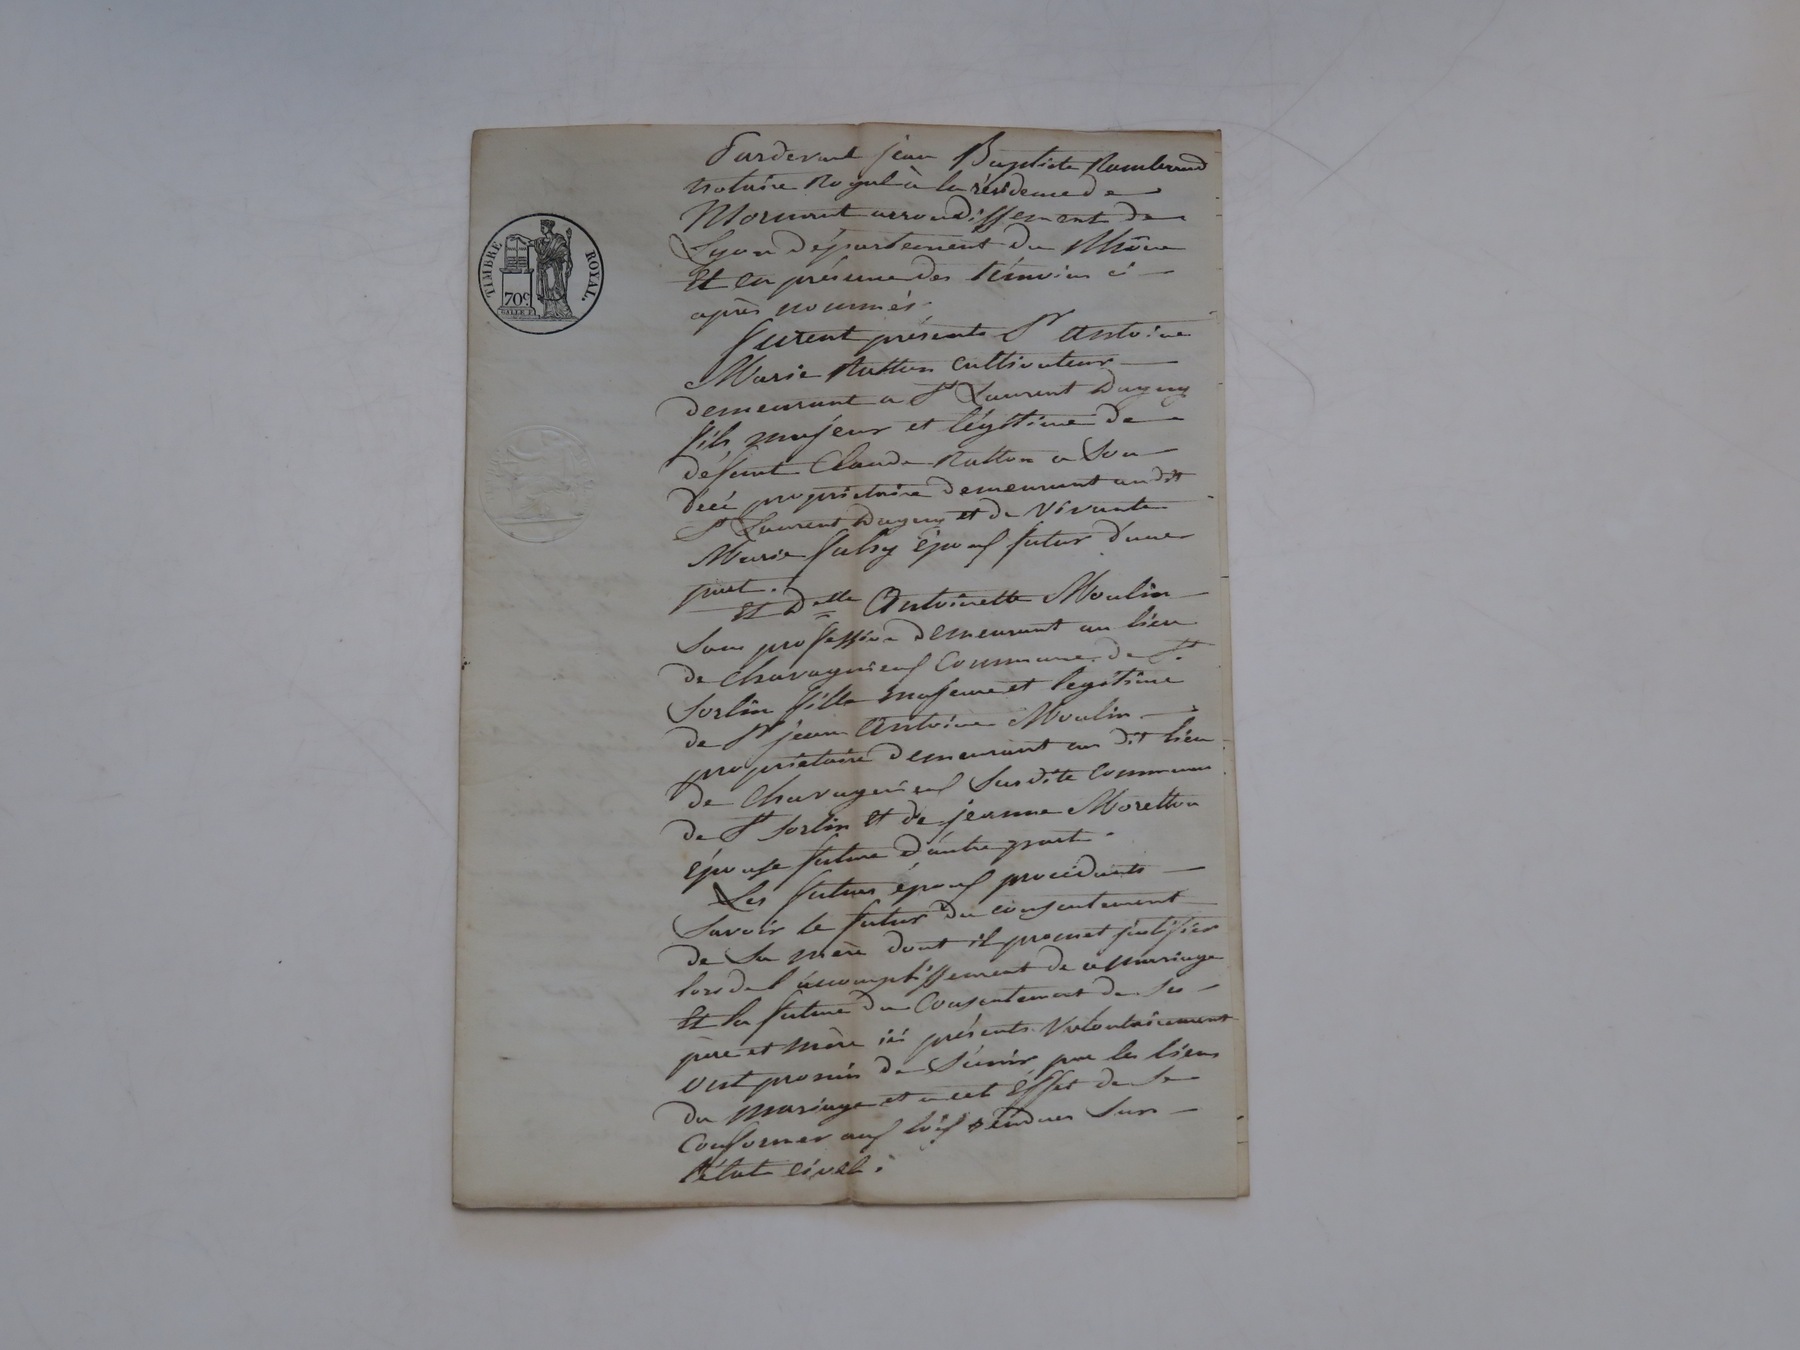 TIMBRE ROYAL.
70c.
Pardevant jean Baptiste Rambaud
notaire Royal à la résidence de
Mornant arrondissement de
Lyon département du Rhône
Et en présence des témoins ci
après nommés.
furent présents Sr antoine
Marie Ratton cultivateur
demeurant a St Laurent Dagny
fils majeur et légitime de
défunt Claude Ratton a Son
décé propriétaire demeurant au dit
St Laurent Dagny et de vivante
Marie epoux futur d'une
part.
Et Delle Antoinette Moulin
Sans profession demeurant au lieu
de Chavagnieux Commune de St
Sorlin fille majeure et legitime
de Sr jean Antoine Moulin
propriétaire demeurant au dit lieu
de Chavagnieux Susdite Commune
de St Sorlin et de jeanne Moretton
épouse future d'autre part.
Les futurs époux procédants
Savoir le futur du consentement
de Sa mère dont il promet justifier
lors de l'accomplissement de ce mariage
Et la future du Consentement de Ses
père et mère ici présents Volontairement
ont promis de S'unir par les liens
du mariage et a cet Effet de Se
Conformer aux loix rendues Sur
l'état civil.